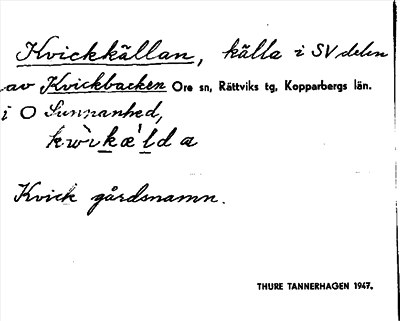 Kvickkällan, källa i SV delen
av Kvickbacken Ore sn, Rättviks tg, Kopparbergs län.
i O Sunnanhed,
kwìkæ'lda
Kvick gårdsnamn.
THURE TANNERHAGEN 1947.